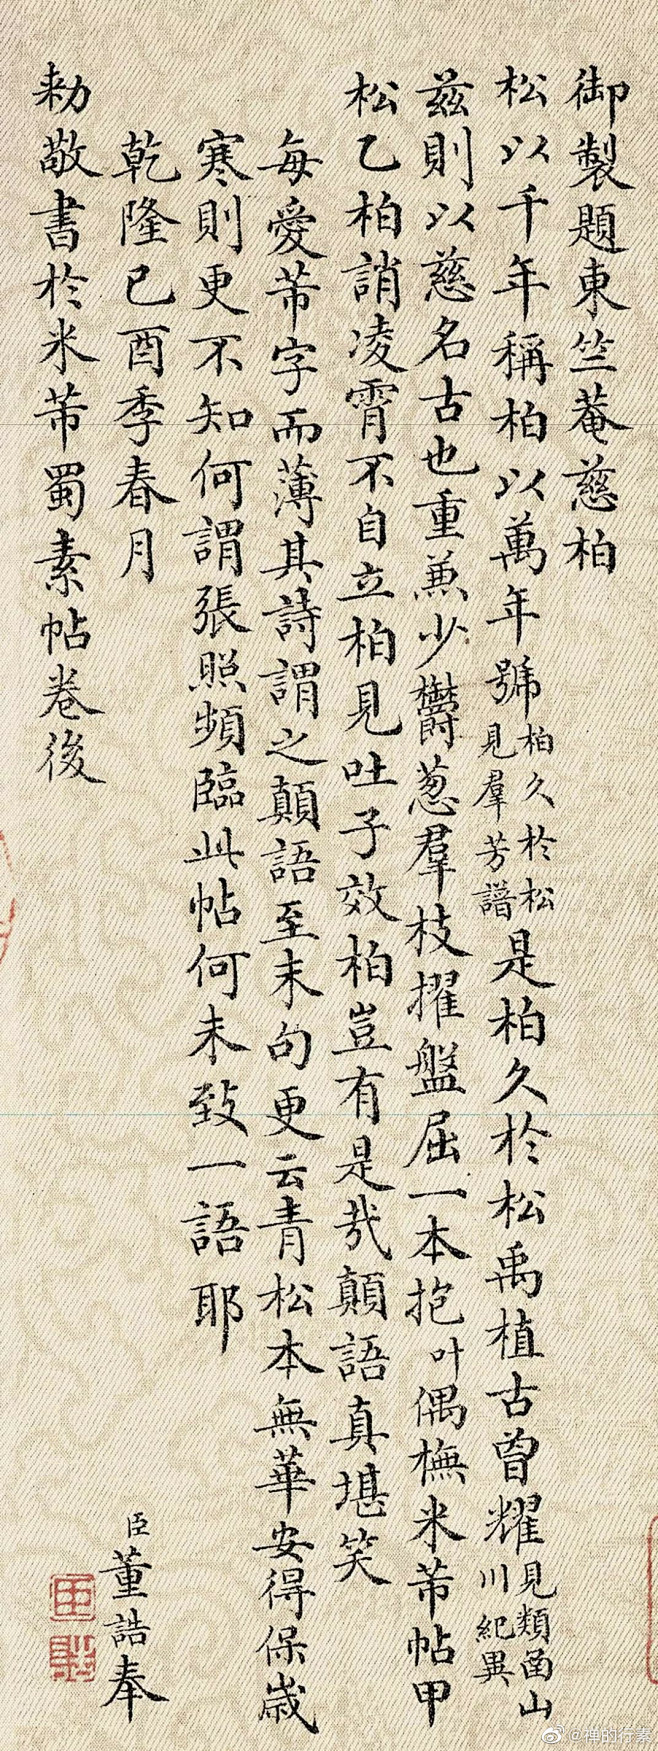 御製題東竺菴慈柏
松以千年稱柏以萬年號柏久於松見羣芳譜是柏久於松禹植古曾耀見類函山川紀異
茲則以慈名古也重兼少欝葱羣枝擢盤屈一本抱叶偶橅米芾帖甲
松乙柏誚凌霄不自立柏見吐子效柏豈有是哉顛語真堪笑
每愛芾字而薄其詩謂之顛語至末句更云青松本無華安得保歲
寒則更不知何謂張照頻臨此帖何未致一語耶
乾隆己酉季春月
臣董誥奉
勅敬書於米芾蜀素帖卷後
@禅的行素